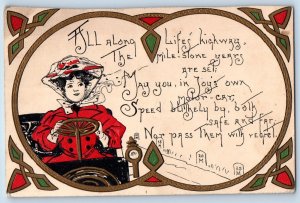 All along Life's highway,
The mile-stone years
are set;
May you, in Joy's own
Motor-car,
Speed blithely by, both
safe and fat,
Nor pass them with regret.